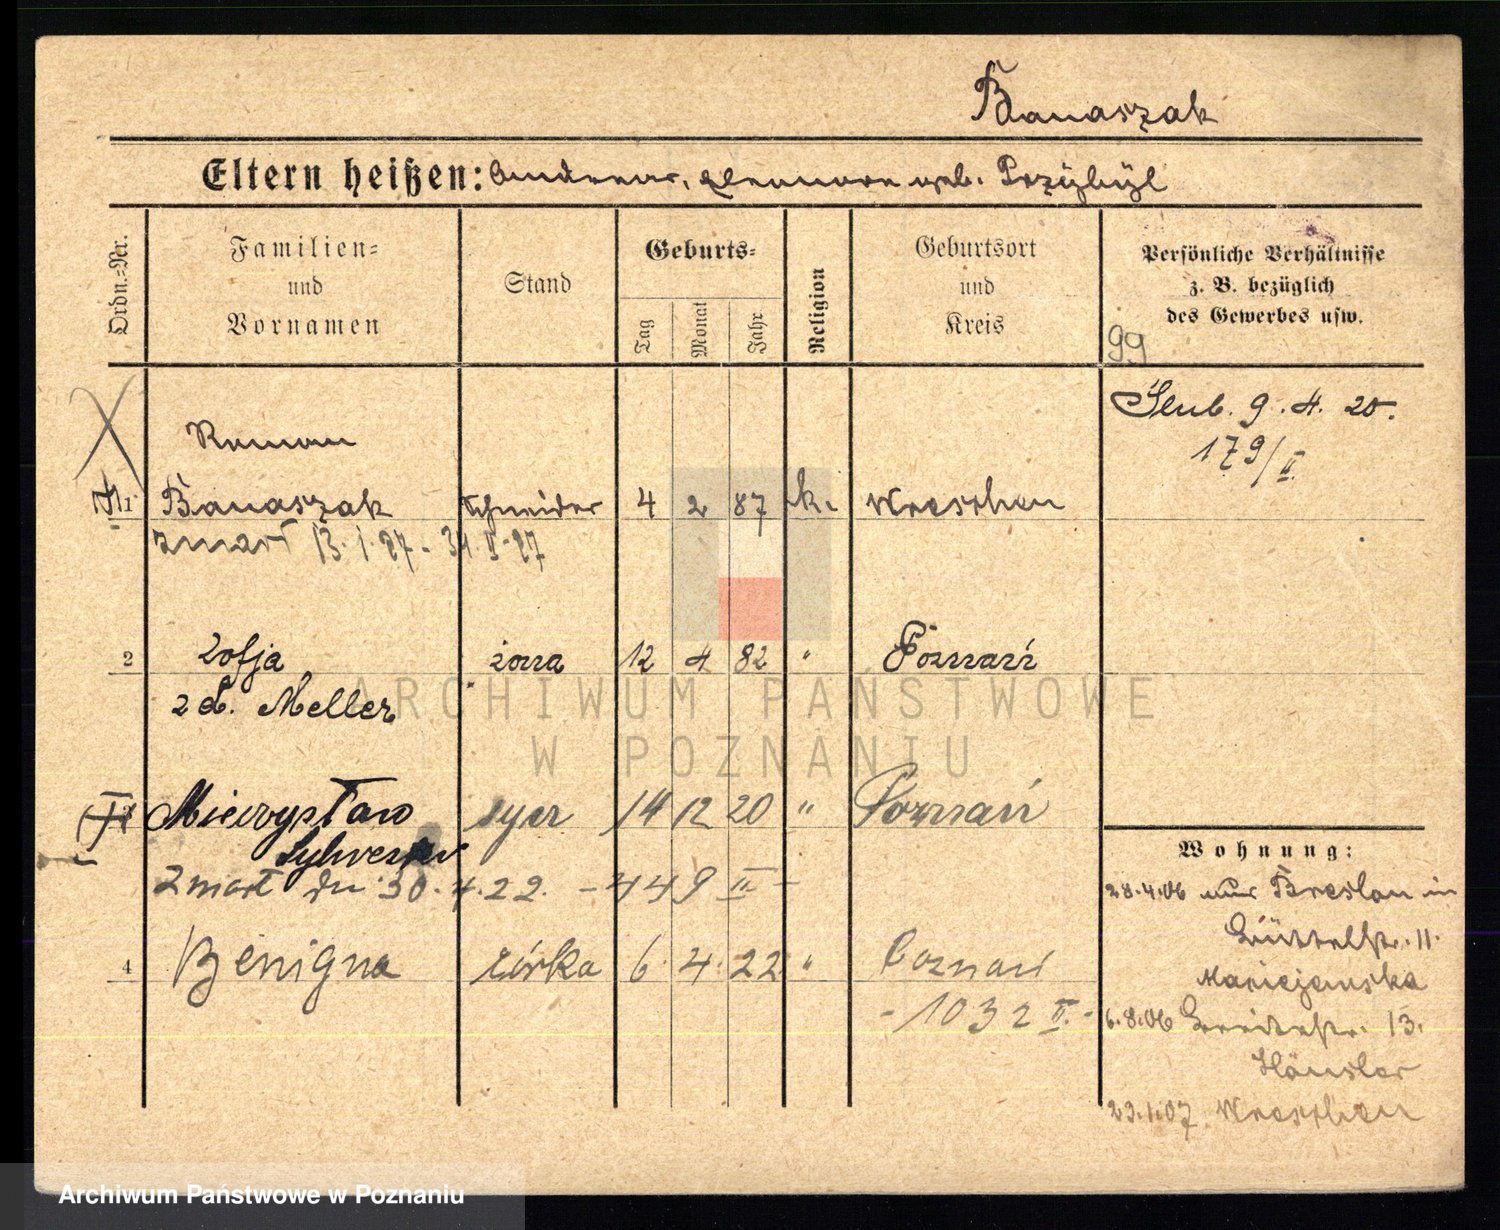 Banaszak
Eltern heißen: Andreas, Eleonore geb. Przybyl
Ordn.-Nr.
Familien-
und
Vornamen
Stand
Geburts-
Tag
Monat
Jahr
Religion
Geburtsort
und
Kreis
Persönliche Verhältnisse
z. B. bezüglich
des Gewerbes usw.
99
Ślub. 9. 4. 20.
179/II.
Roman
1 Banaszak Schneider 4 2 87 k. Wreschen
zmarł 13. 1. 27 -
2 Zofja żona 12 4 82 " Poznań
z d. Meller
ARCHIWUM PAŃSTWOWE
W POZNANIU
3 Mieczysław syn 14 12 20 " Poznań
Sylwester
Zmarł dn. 30. 4. 22. - 449 II -
4 Benigna córka 6. 4. 22 " Poznań
- 1032 II. -
Wohnung:
28.4.06 aus Breslau in
11.
6.8.06 13.
Häusler
23.1.07 Wreschen
Archiwum Państwowe w Poznaniu